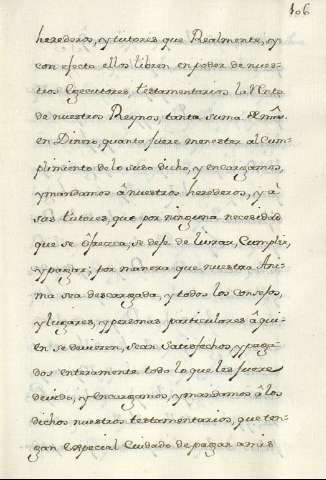 106
herederos, y tutores que Realmente, y
con efecto ellos libren en poder de nues-
tros Egecutores, testamentarios la Renta
de nuestros Reynos, tanta suma
en Dinero, quanta fuere menester al Cum-
plimiento de lo suso dicho, y encargamos,
y mandamos à nuestros herederos, y à
sus tutores, que por ninguna necesidad
que se ôfrezca, se deje de librar, Cumplir,
y pagar; por manera que nuestra Ani-
ma sea descargada, y todos los Consejos,
y lugares, y personas particulares â qui-
en se devieren, sean Satisfechos, y paga-
dos enteramente todo lo que les fuere
devido, y Encargamos, y mandamos â los
dichos nuestros testamentarios, que ten-
gan Especial Cuidado de pagar a mis